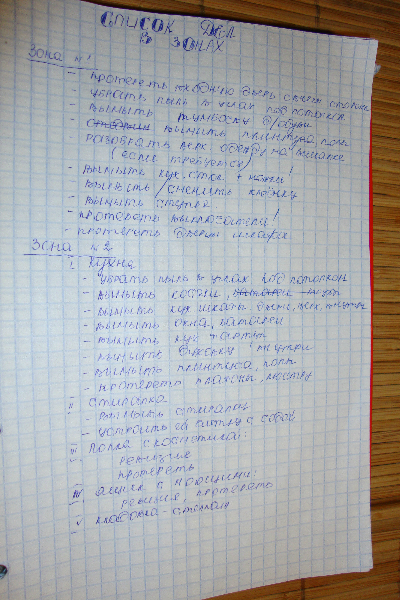 СПИСОК ДЕЛ
В ЗОНАХ
Зона №1
- протереть входную дверь с двух сторон
- убрать пыль в углах под потолком
- вымыть тумбочку д/обуви
- вымыть плинтуса, полы
разобрать верх. одежду на вешалке
(если требуется)
- вымыть кух. стол + ножки!
- вымыть/сменить клеёнку
- вымыть стулья
- протереть выключатели!
- протереть двери шкафа
Зона №2
I. Кухня
- убрать пыль в углах под потолком
- вымыть
- вымыть кух шкафы внутри
- вымыть окна, батареи
- вымыть кух фартук
- вымыть внутри
- вымыть плинтуса, полы
- протереть плафоны, люстру
II стиралка
- вымыть стиралку
- устроить ей стирку с содой
III полка с косметикой:
ревизия
протереть
IV ящик с
ревизия, протереть
V кладовка -